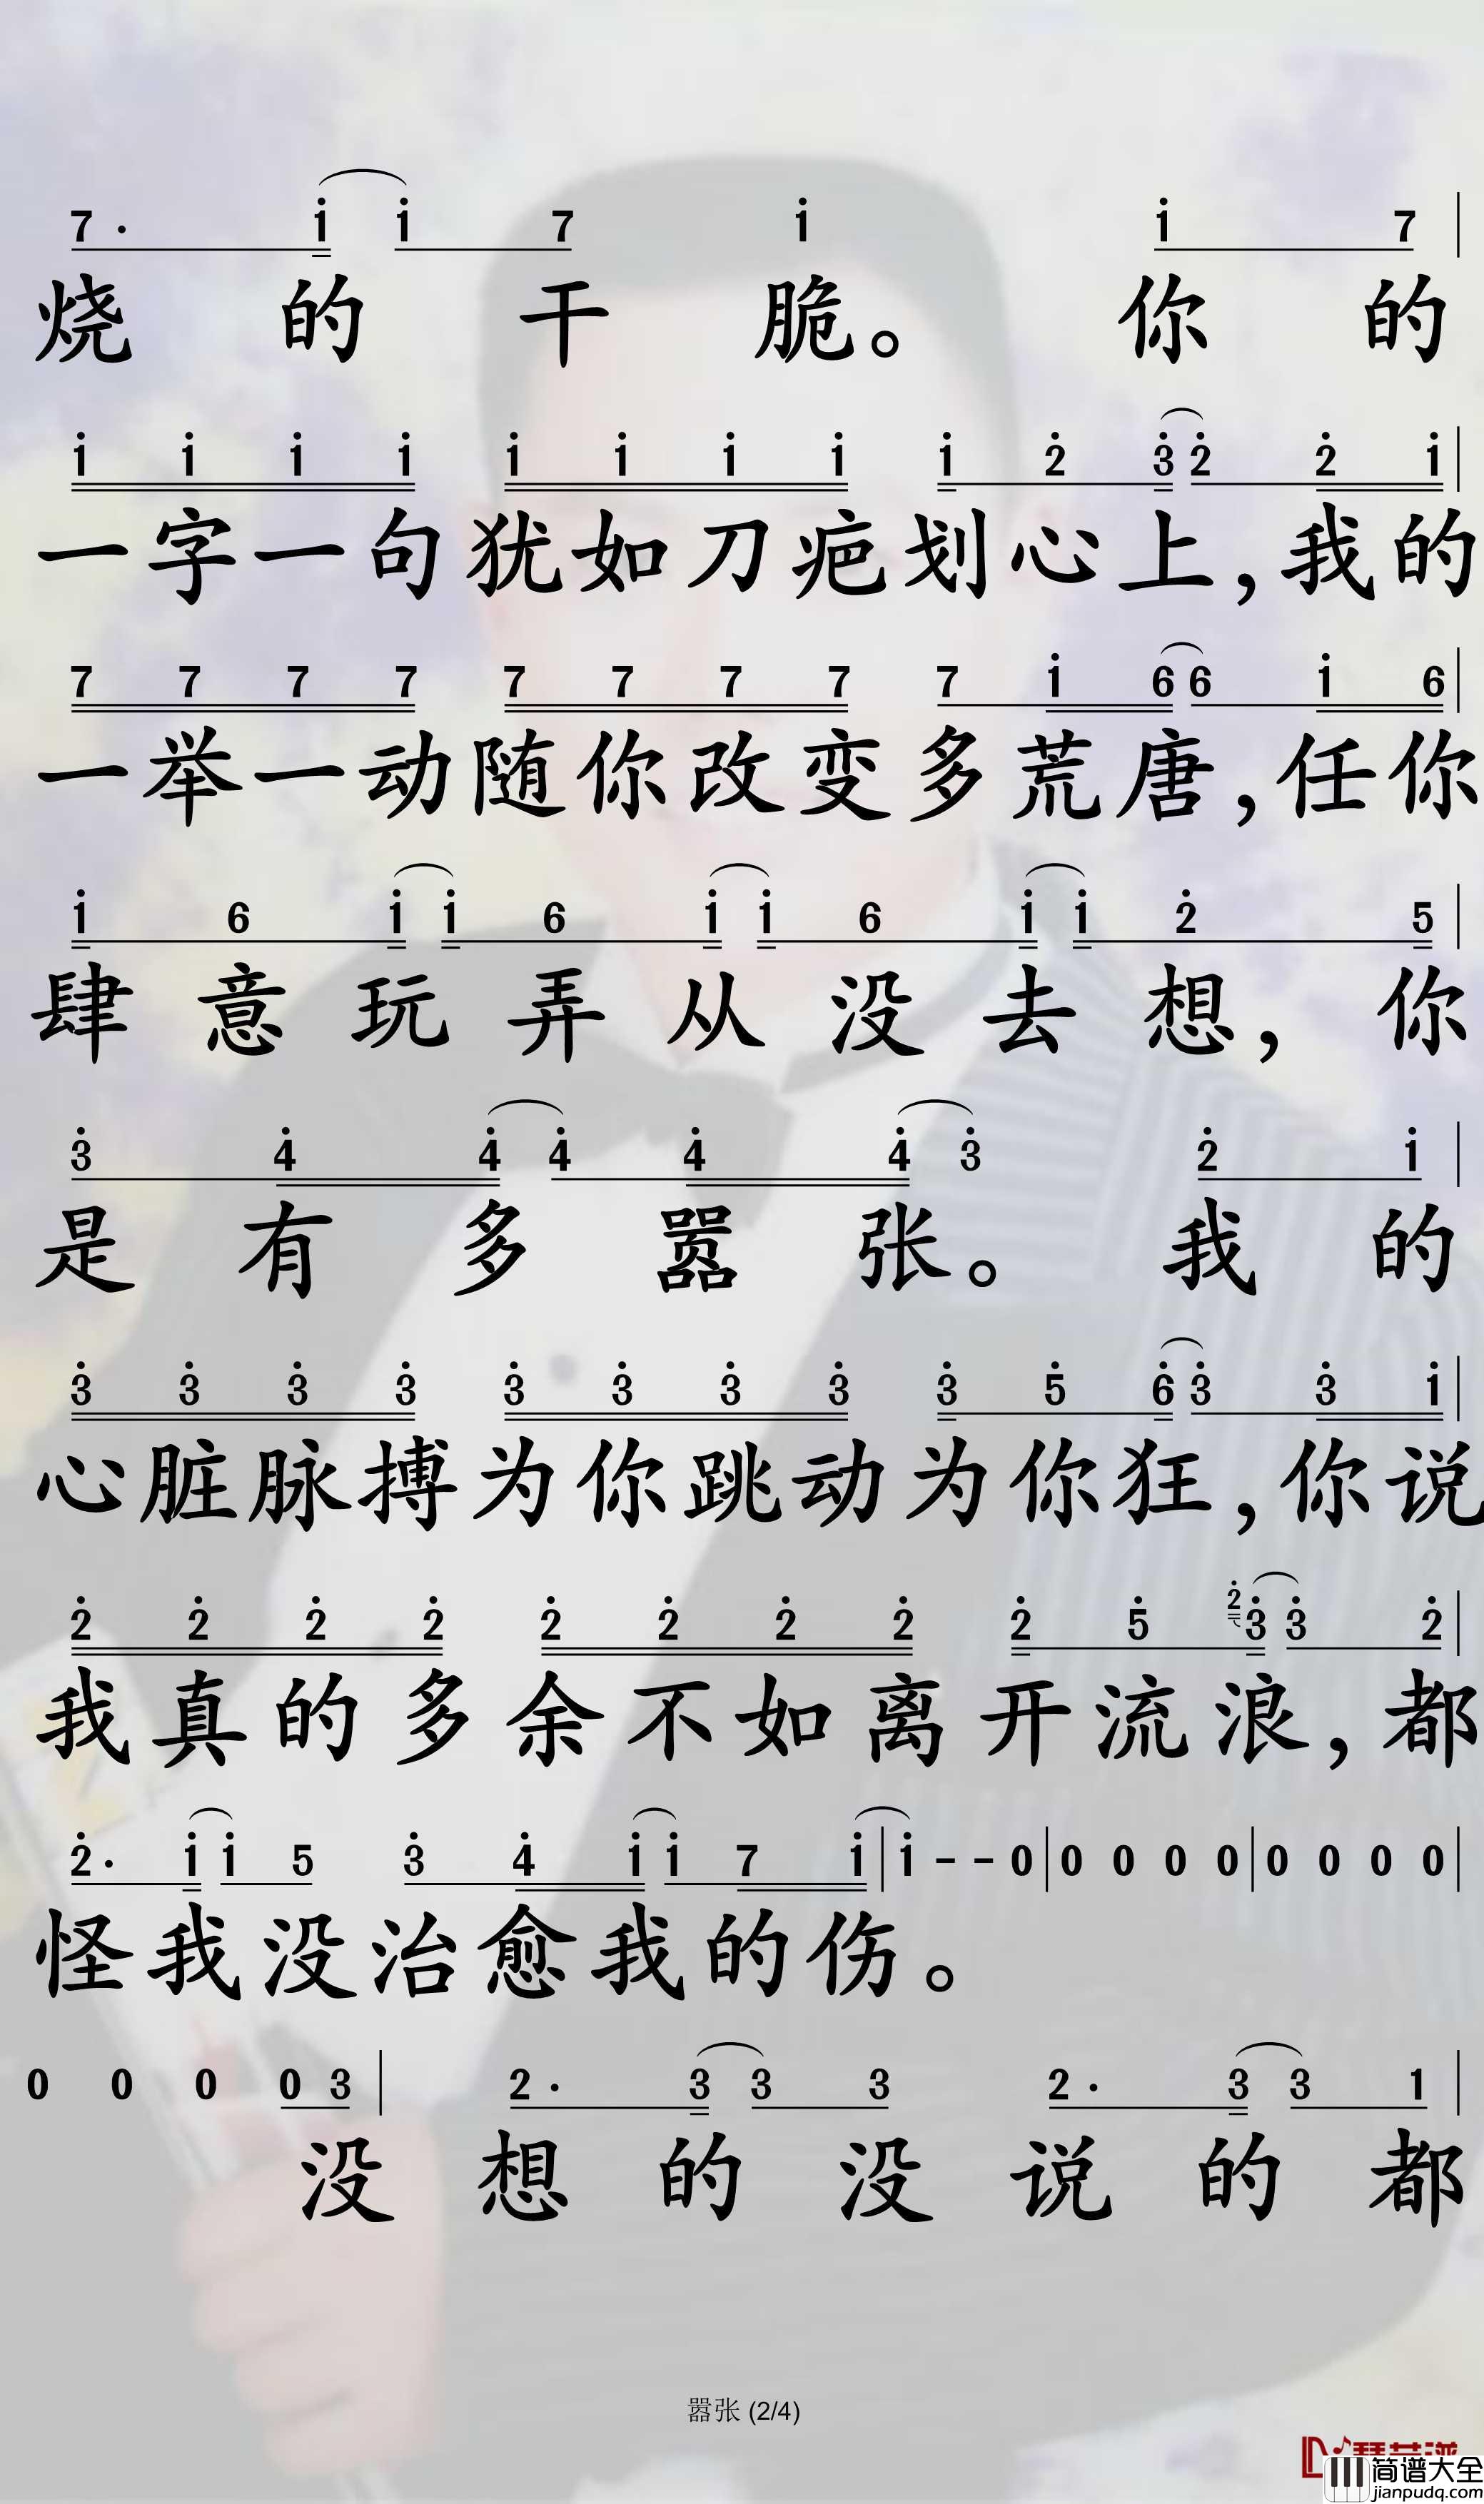 7· i i 7 i i 7
烧的干脆。你的
i i i i i i i i i 2 3 2 2 i
一字一句犹如刀疤划心上,我的
7 7 7 7 7 7 7 7 7 i 6 6 i 6
一举一动随你改变多荒唐,任你
i 6 i i 6 i i 6 i i 2 5
肆意玩弄从没去想,你
3 4 4 4 4 4 3 2 i
是有多嚣张。我的
3 3 3 3 3 3 3 3 3 5 6 3 3 i
心脏脉搏为你跳动为你狂,你说
2 2 2 2 2 2 2 2 2 5 2 3 3 2
我真的多余不如离开流浪,都
2· i i 5 3 4 i i 7 i | i - - 0 | 0 0 0 0 | 0 0 0 0 |
怪我没治愈我的伤。
0 0 0 0 3 | 2· 3 3 3 2· 3 3 1 |
没想的没说的都
嚣张 (2/4)
简谱大全
jianpudq.com